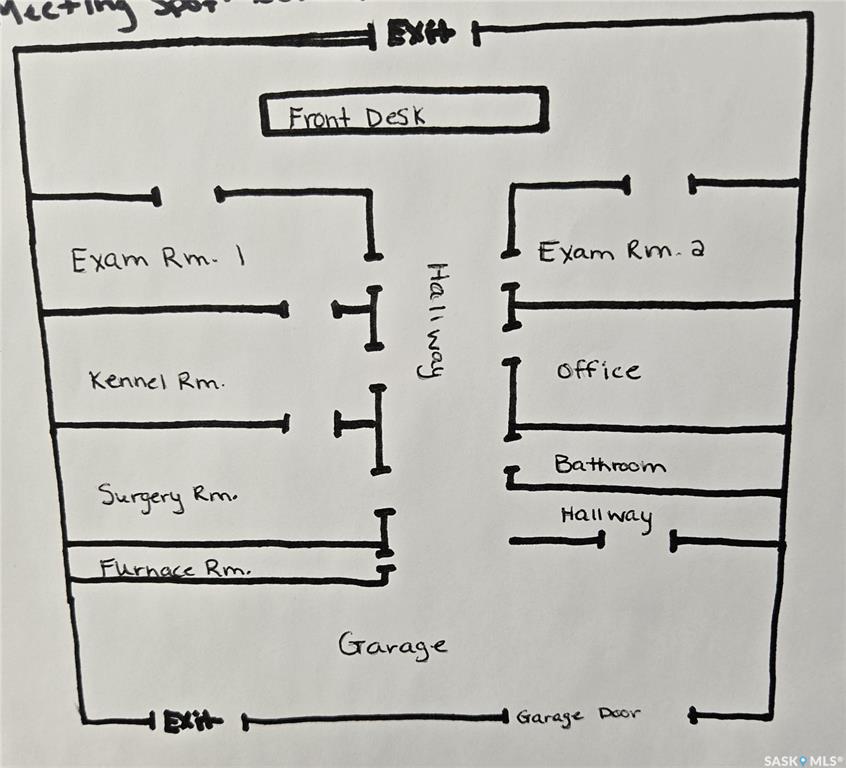 Meeting Spot
EXit
Front Desk
Exam Rm. 1
Exam Rm. 2
Hallway
Kennel Rm.
Office
Bathroom
Surgery Rm.
Hallway
Furnace Rm.
Garage
EXit
Garage Door
SASK MLS®